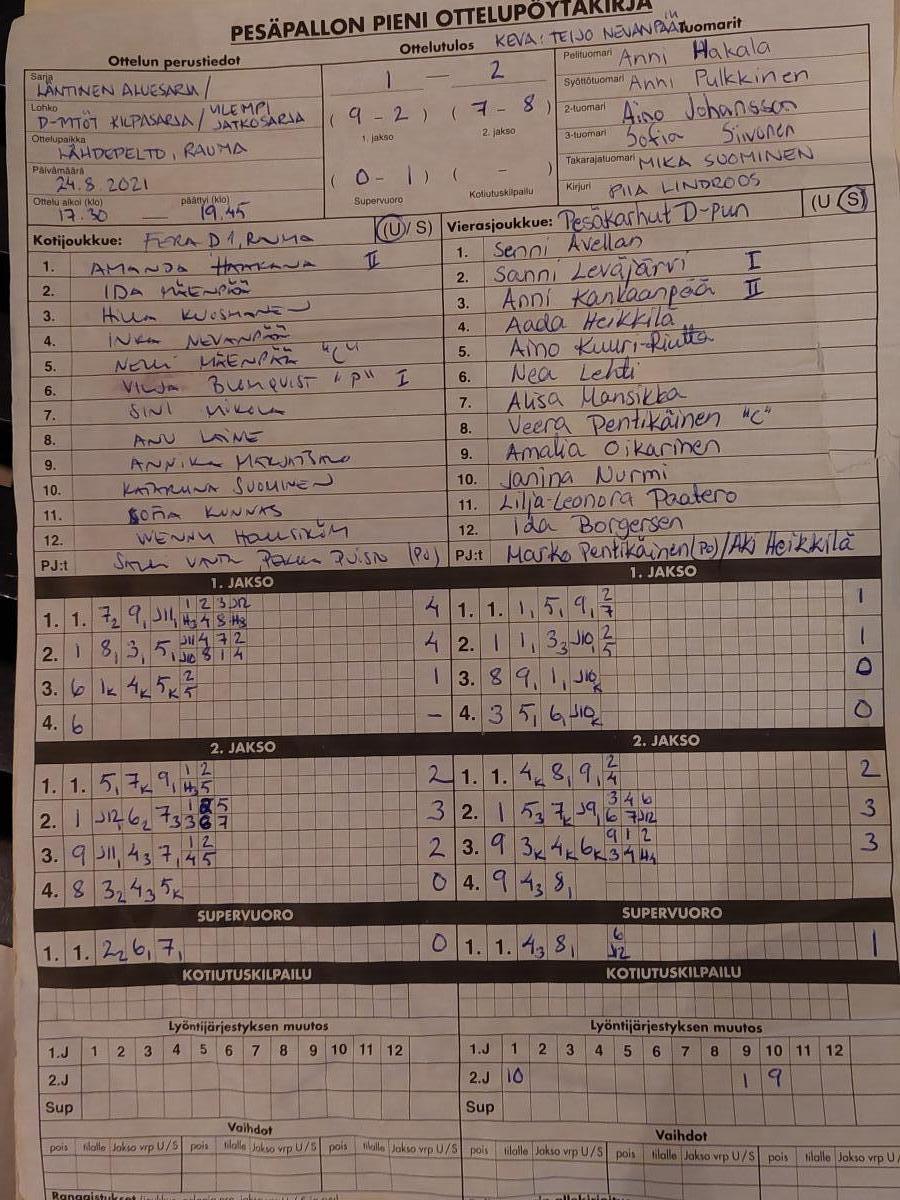 PESÄPALLON PIENI OTTELUPÖYTÄKIRJA
Ottelun perustiedot
Ottelutulos KEVA: TEIJO NEVANPÄÄ
Tuomarit
Sarja LÄNTINEN ALUESARJA /
Lohko D-TYTÖT KILPASARJA / YLEMPI JATKOSARJA
Ottelupaikka LÄHDEPELTO, RAUMA
Päivämäärä 24.8.2021
Ottelu alkoi (klo) päättyi (klo)
17.30 — 19.45
1 — 2
(9 - 2) (7 - 8)
1. jakso 2. jakso
(0 - 1) ( - )
Supervuoro Kotiutuskilpailu
Pelituomari Anni Hakala
Syöttötuomari Anni Pulkkinen
2-tuomari Aino Johansson
3-tuomari Sofia Siivonen
Takarajatuomari MIKA SUOMINEN
Kirjuri PIIA LINDROOS
Kotijoukkue: FERA D1, RAUMA (U/S)
1. AMANDA HAAKANA II
2. IDA MÄENPÄÄ
3. HILLA KUOSMANEN
4. INKA NEVANPÄÄ
5. NELLI MÄENPÄÄ "C"
6. VILJA BLOMQVIST "P" I
7. SINI MIKOLA
8. ANU LAINE
9. ANNIKA
10. KATARIINA SUOMINEN
11. SOFIA KUNNAS
12. WENNY
PJ:t (PÖ)
Vierasjoukkue: Pesäkarhut D-pun (U/S)
1. Senni Avellan
2. Sanni Leväjärvi I
3. Anni Kankaanpää II
4. Aada Heikkilä
5. Aino Kuuri-Riutta
6. Nea Lehti
7. Alisa Mansikka
8. Veera Pentikäinen "C"
9. Amalia Oikarinen
10. Janina Nurmi
11. Lilja-Leonora Paatero
12. Ida Borgersen
PJ:t Marko Pentikäinen (PÖ) / Aki Heikkilä
1. JAKSO
1. 1. 7₂ 9, J11, 1 2 3 J12 H3 4 8 H3 4
2. 1 8, 3, 5, J11 4 7 2 J10 8 1 4 4
3. 6 1K 4K 5K 2 5 1
4. 6 –
1. JAKSO
1. 1. 1, 5, 9, 2 7 1
2. 1 1, 3₃ J10, 2 5 1
3. 8 9, 1, J10K 0
4. 3 5, 6, J10K 0
2. JAKSO
1. 1. 5, 7K 9, 1 2 H3 5 2
2. 1 J12, 6₂ 7₃ 3
3. 9 J11, 4₃ 7, 1 2 4 5 2
4. 8 3₂ 4₃ 5K 0
2. JAKSO
1. 1. 4K 8, 9, 2 4 2
2. 1 5₃ 7K J9, 3 4 6 6 7 J12 3
3. 9 3K 4K 6K 9 1 2 3 4 H4 3
4. 9 4₃ 8,
SUPERVUORO
1. 1. 2₂ 6, 7, 0
SUPERVUORO
1. 1. 4₃ 8, 6 J12 1
KOTIUTUSKILPAILU
KOTIUTUSKILPAILU
Lyöntijärjestyksen muutos
1.J 1 2 3 4 5 6 7 8 9 10 11 12
2.J
Sup
Lyöntijärjestyksen muutos
1.J 1 2 3 4 5 6 7 8 9 10 11 12
2.J 10 1 9
Sup
Vaihdot
pois tilalle Jakso vrp U/S pois tilalle Jakso vrp U/S pois tilalle Jakso vrp U/S
Vaihdot
pois tilalle Jakso vrp U/S pois tilalle Jakso vrp U/S pois tilalle Jakso vrp U/